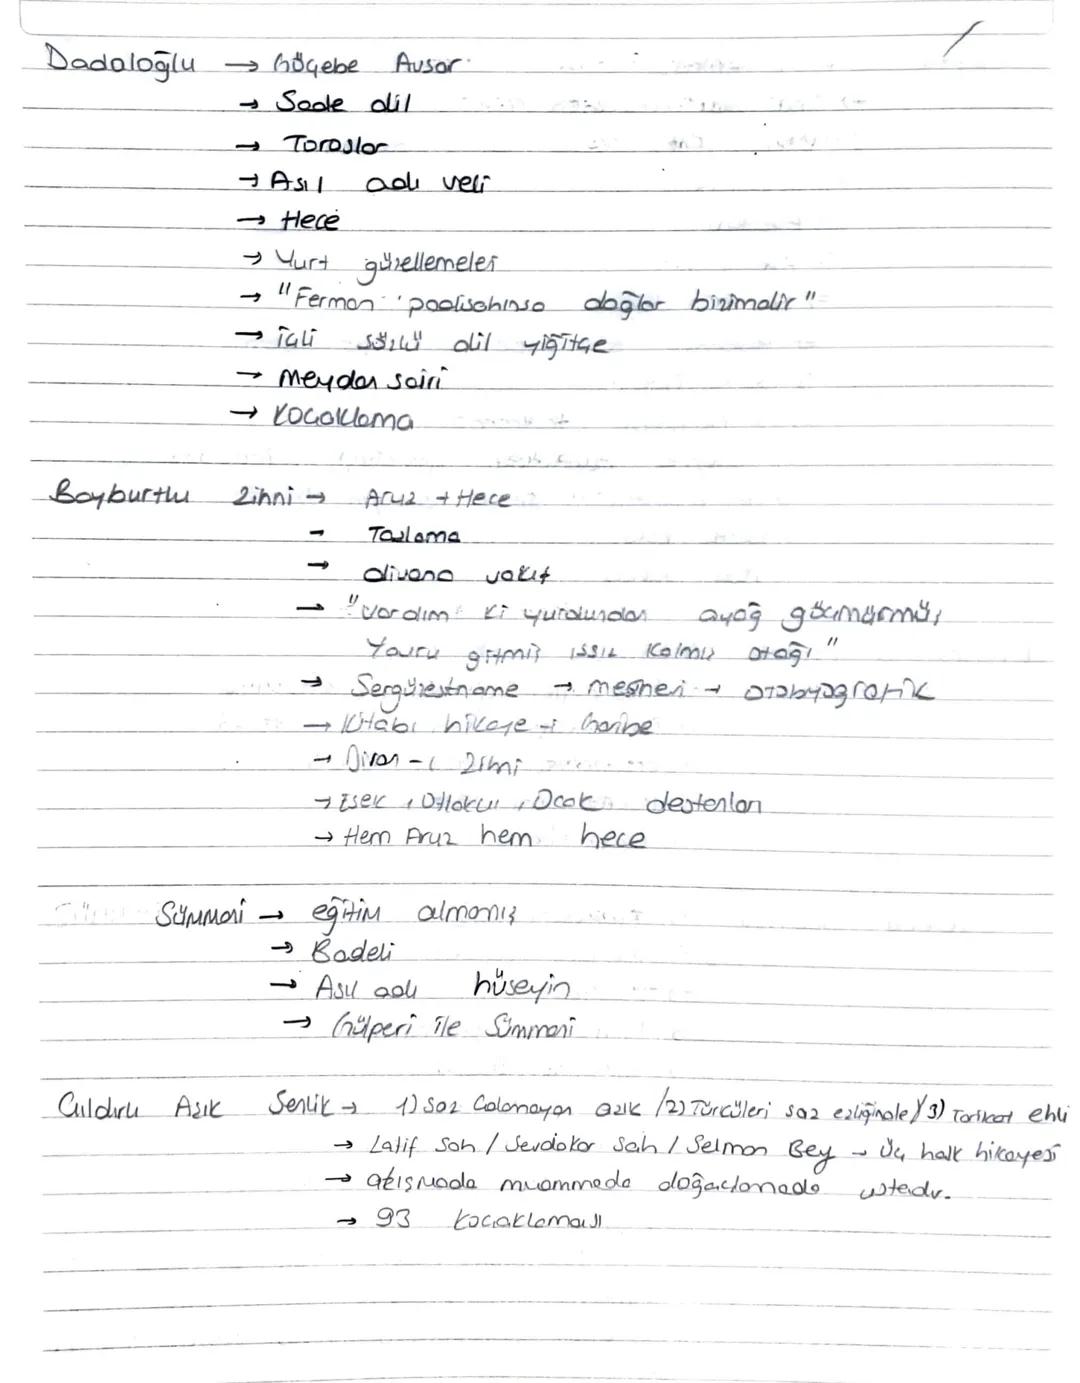 Dadaloğlu → Göçebe Avşar
→ Sade dil
→ Toroslar
→ Asıl adı veli
→ Hece
→ Yurt güzellemeleri
→ "Ferman padişahınsa dağlar bizimdir"
→ içli sözlü dil yiğitçe
→ Meydan şairi
→ Koçaklama
Bayburtlu Zihni → Aruz + Hece
- Taşlama
→ divana vakıf
→ "Vardım ki yurdundan ayağ göçürmüş,
Yavru gitmiş ıssız kalmış otağı"
→ Sergüzeştname → mesnevi → otobiyografik
→ Kitabı hikaye-i Garibe
→ Divan-ı Zihni
→ Eşek, Otlakçı, Ocak destanları
→ Hem Aruz hem hece
Sümmani → eğitim almamış
→ Badeli
→ Asıl adı hüseyin
→ Gülperi ile Sümmani
Çıldırlı Aşık Şenlik → 1) Saz Çalamayan aşık / 2) Türküleri saz eşliğinde / 3) Tarikat ehli
→ Latif Şah / Sevdakar Şah / Salman Bey → Üç halk hikayesi
→ atışmada muammada doğaçlamada ustadır.
→ 93 Koçaklaması